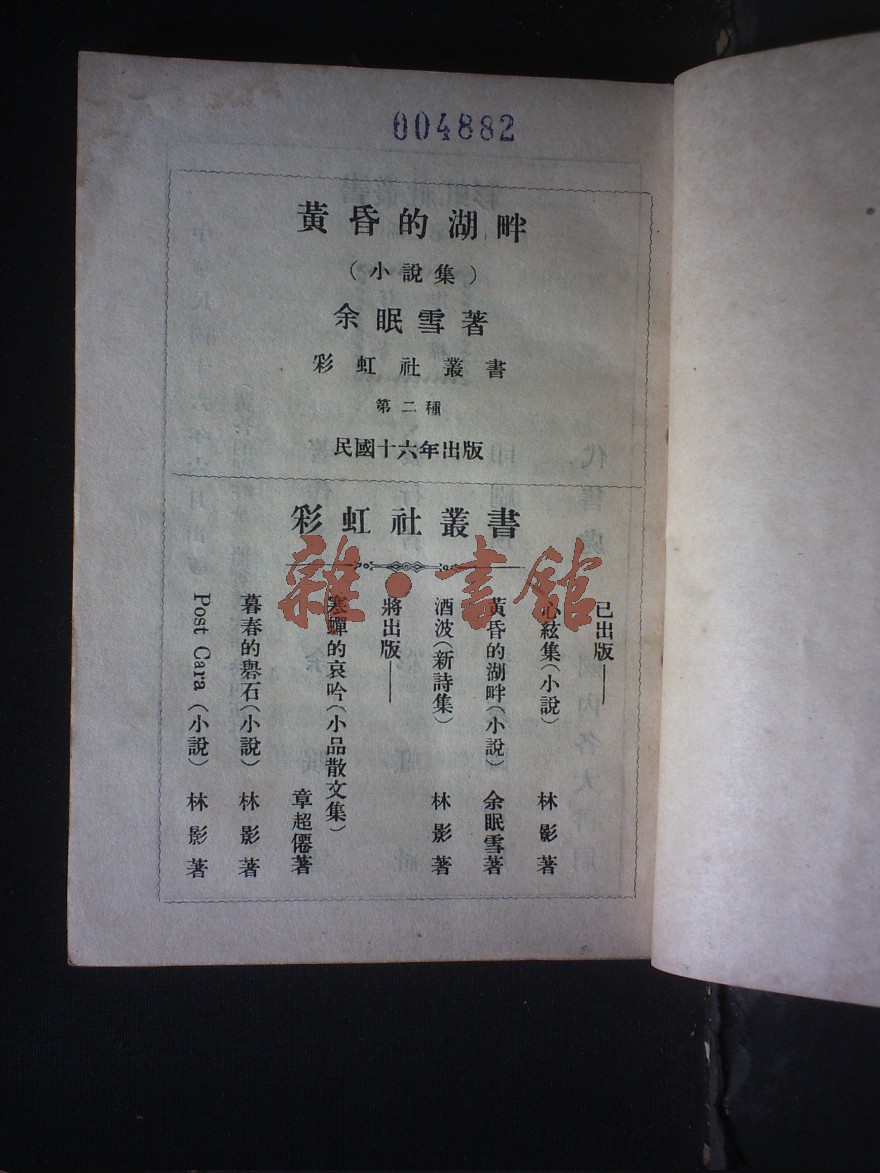 004882
黃昏的湖畔
（小說集）
余眠雪著
彩虹社叢書
第二種
民國十六年出版
彩虹社叢書
雜·書館
已出版——
心絃集（小說） 林影著
黃昏的湖畔（小說） 余眠雪著
酒波（新詩集） 林影著
將出版——
寒蟬的哀吟（小品散文集）
章超僊著
暮春的礐石（小說） 林影著
Post Cara（小說） 林影著